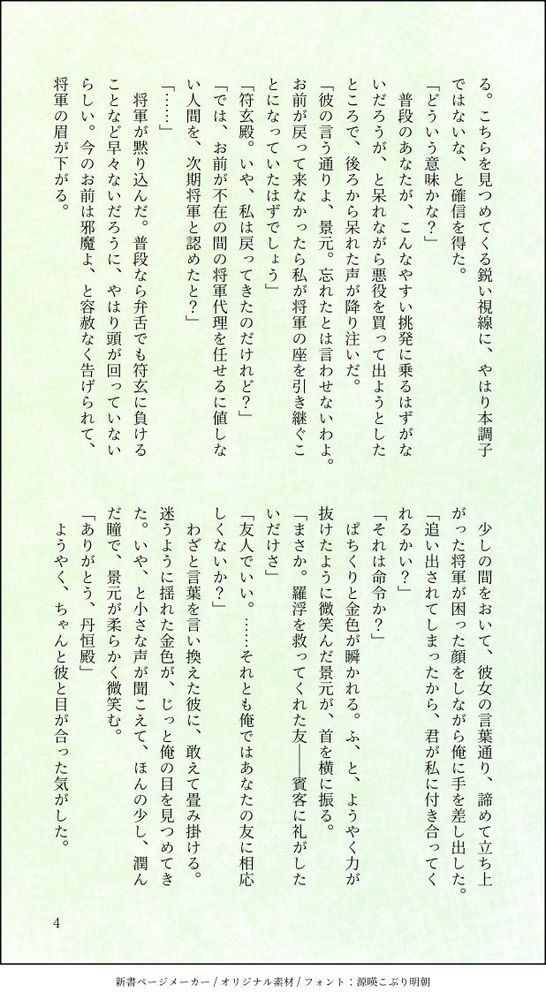 る。こちらを見つめてくる鋭い視線に、やはり本調子
ではないな、と確信を得た。
「どういう意味かな？」
　普段のあなたが、こんなやすい挑発に乗るはずがな
いだろうが、と呆れながら悪役を買って出ようとした
ところで、後ろから呆れた声が降り注いだ。
「彼の言う通りよ、景元。忘れたとは言わせないわよ。
お前が戻って来なかったら私が将軍の座を引き継ぐこ
とになっていたはずでしょう」
「符玄殿。いや、私は戻ってきたのだけれど？」
「では、お前が不在の間の将軍代理を任せるに値しな
い人間を、次期将軍と認めたと？」
「……」
　将軍が黙り込んだ。普段なら弁舌でも符玄に負ける
ことなど早々ないだろうに、やはり頭が回っていない
らしい。今のお前は邪魔よ、と容赦なく告げられて、
将軍の眉が下がる。
　少しの間をおいて、彼女の言葉通り、諦めて立ち上
がった将軍が困った顔をしながら俺に手を差し出した。
「追い出されてしまったから、君が私に付き合ってく
れるかい？」
「それは命令か？」
　ぱちくりと金色が瞬かれる。ふ、と、ようやく力が
抜けたように微笑んだ景元が、首を横に振る。
「まさか。羅浮を救ってくれた友――賓客に礼がした
いだけさ」
「友人でいい。……それとも俺ではあなたの友に相応
しくないか？」
　わざと言葉を言い換えた彼に、敢えて畳み掛ける。
迷うように揺れた金色が、じっと俺の目を見つめてき
た。いや、と小さな声が聞こえて、ほんの少し、潤ん
だ瞳で、景元が柔らかく微笑む。
「ありがとう、丹恒殿」
　ようやく、ちゃんと彼と目が合った気がした。
4
新書ページメーカー / オリジナル素材 / フォント：源暎こぶり明朝